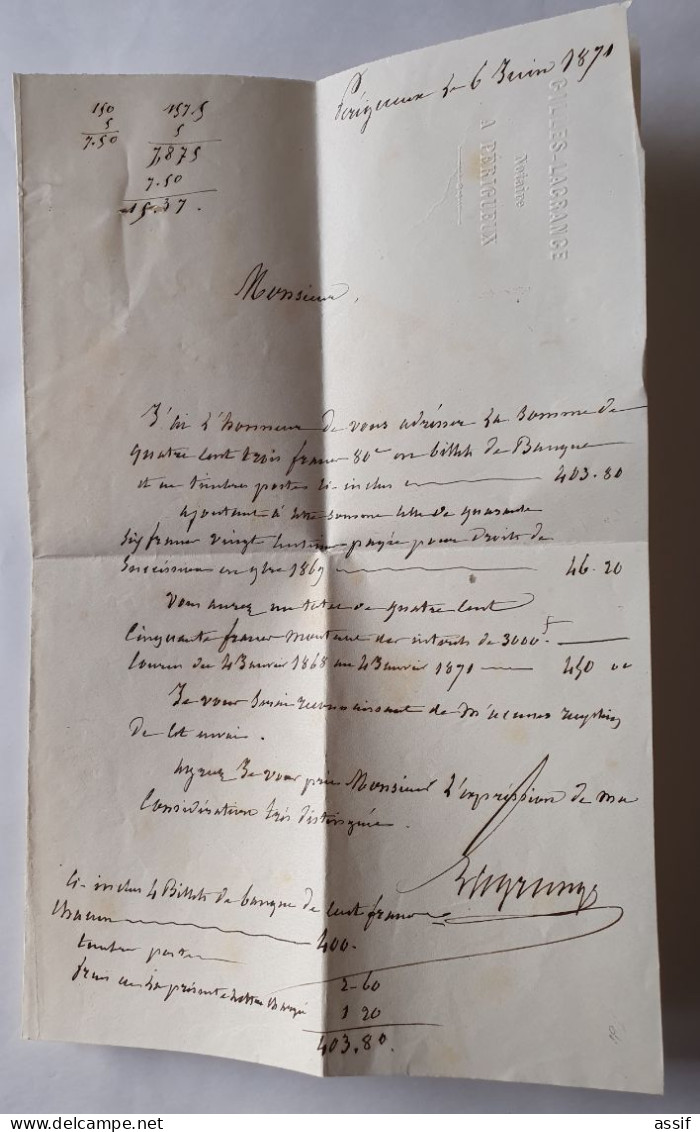 150
5
7.50
157.5
5
7,875
7.50
15.37.
Périgueux le 6 Juin 1871
GILLES-LAGRANGE
Notaire
A PÉRIGUEUX
Monsieur,
J'ai l'honneur de vous adresser la somme de
quatre cent trois francs 80c en billets de Banque
et en timbres postes ci-inclus 403.80
ajoutant à cette somme celle de quarante
six francs vingt centimes payée pour Droits de
Succession en 9bre 1869 46.20
vous aurez un total de quatre cent
cinquante francs montant des intérêts de 3000f
courus du 4 Janvier 1868 au 4 Janvier 1871 450 00
Je vous serai reconnaissant de m'accuser reception
de cet envoi.
agréez Je vous prie Monsieur l'expression de ma
Considération très distinguée.
Lagrange
ci-inclus 4 Billets de banque de cent francs
chacun 400.
timbres postes 2-60
frais de la présente lettre chargée 1 20
403.80.
delcampe.net
assif